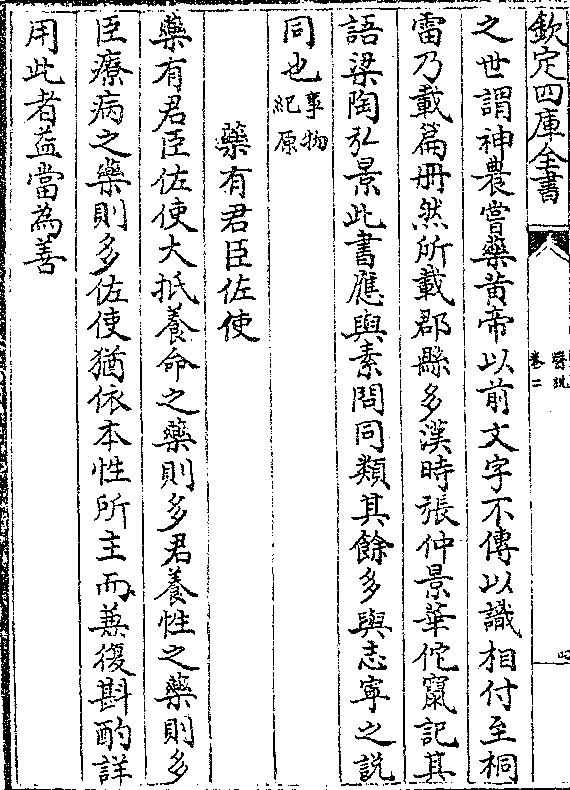 欽定四庫全書
醫說
卷二
之世謂神農嘗藥黃帝以前文字不傳以識相付至桐
雷乃載篇冊然所載郡縣多漢時張仲景華佗竄記其
語梁陶弘景此書應與素問同類其餘多與志寧之說
同也事物
紀原
藥有君臣佐使
藥有君臣佐使大抵養命之藥則多君養性之藥則多
臣療病之藥則多佐使猶依本性所主而兼復斟酌詳
用此者益當為善